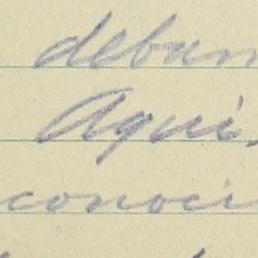 deban
Aqui,
conoci